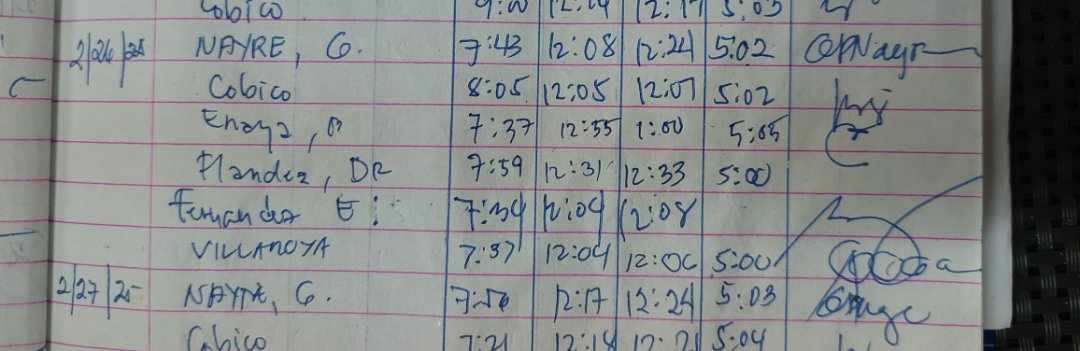 Cobico 12:19 12:19 5:03
2/26/25 NAYRE, G. 7:43 12:08 12:24 5:02
Cobico 8:05 12:05 12:07 5:02
7:37 12:55 1:00 5:05
Flandez, DR 7:59 12:31 12:33 5:00
Fernandez E. 7:34 12:04 12:08
VILLANOVA 7:37 12:04 5:00
2/27/25 NAYRE, G. 12:17 12:24 5:03
Cobico 7:21 12:14 5:04